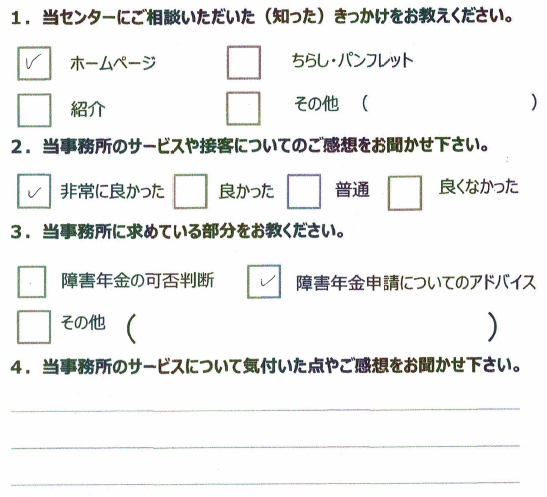 1．当センターにご相談いただいた（知った）きっかけをお教えください。
☑ ホームページ □ ちらし・パンフレット
□ 紹介 □ その他 （ ）
2．当事務所のサービスや接客についてのご感想をお聞かせ下さい。
☑ 非常に良かった □ 良かった □ 普通 □ 良くなかった
3．当事務所に求めている部分をお教ください。
□ 障害年金の可否判断 ☑ 障害年金申請についてのアドバイス
□ その他 （ ）
4．当事務所のサービスについて気付いた点やご感想をお聞かせ下さい。